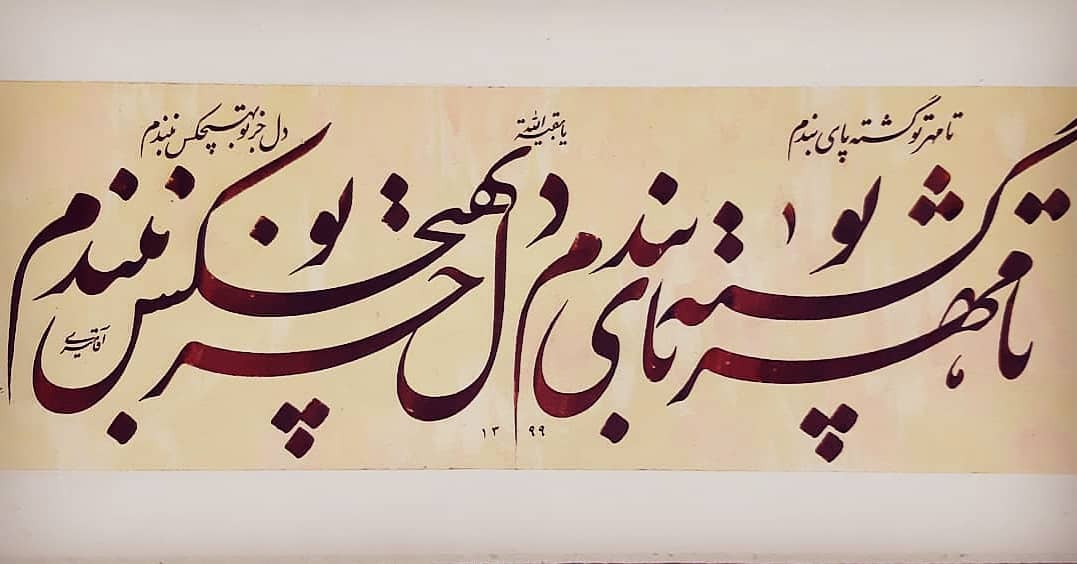 تا مهر تو گشته پای بندم
یا بقیة الله
دل جز تو بهیچکس نبندم
تا مهر تو گشته پای بندم
دل جز تو بهیچکس نبندم
۱۳۹۹